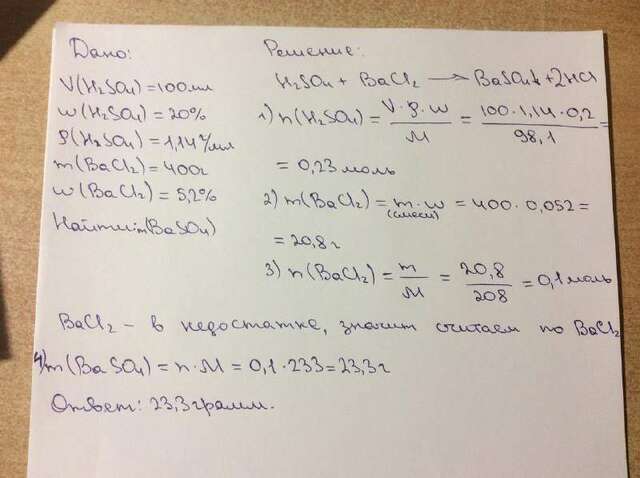 Дано:
V(H₂SO₄) = 100 мл
w(H₂SO₄) = 20%
ρ(H₂SO₄) = 1,14 г/мл
m(BaCl₂) = 400г
w(BaCl₂) = 5,2%
Найти: m(BaSO₄)
Решение:
H₂SO₄ + BaCl₂ → BaSO₄↓ + 2HCl
1) n(H₂SO₄) = V·ρ·w / M = 100·1,14·0,2 / 98,1 =
= 0,23 моль
2) m(BaCl₂) = m(смеси)·w = 400·0,052 =
= 20,8 г
3) n(BaCl₂) = m / M = 20,8 / 208 = 0,1 моль
BaCl₂ – в недостатке, значит считаем по BaCl₂
4) m(BaSO₄) = n·M = 0,1·233 = 23,3 г
Ответ: 23,3 грамм.